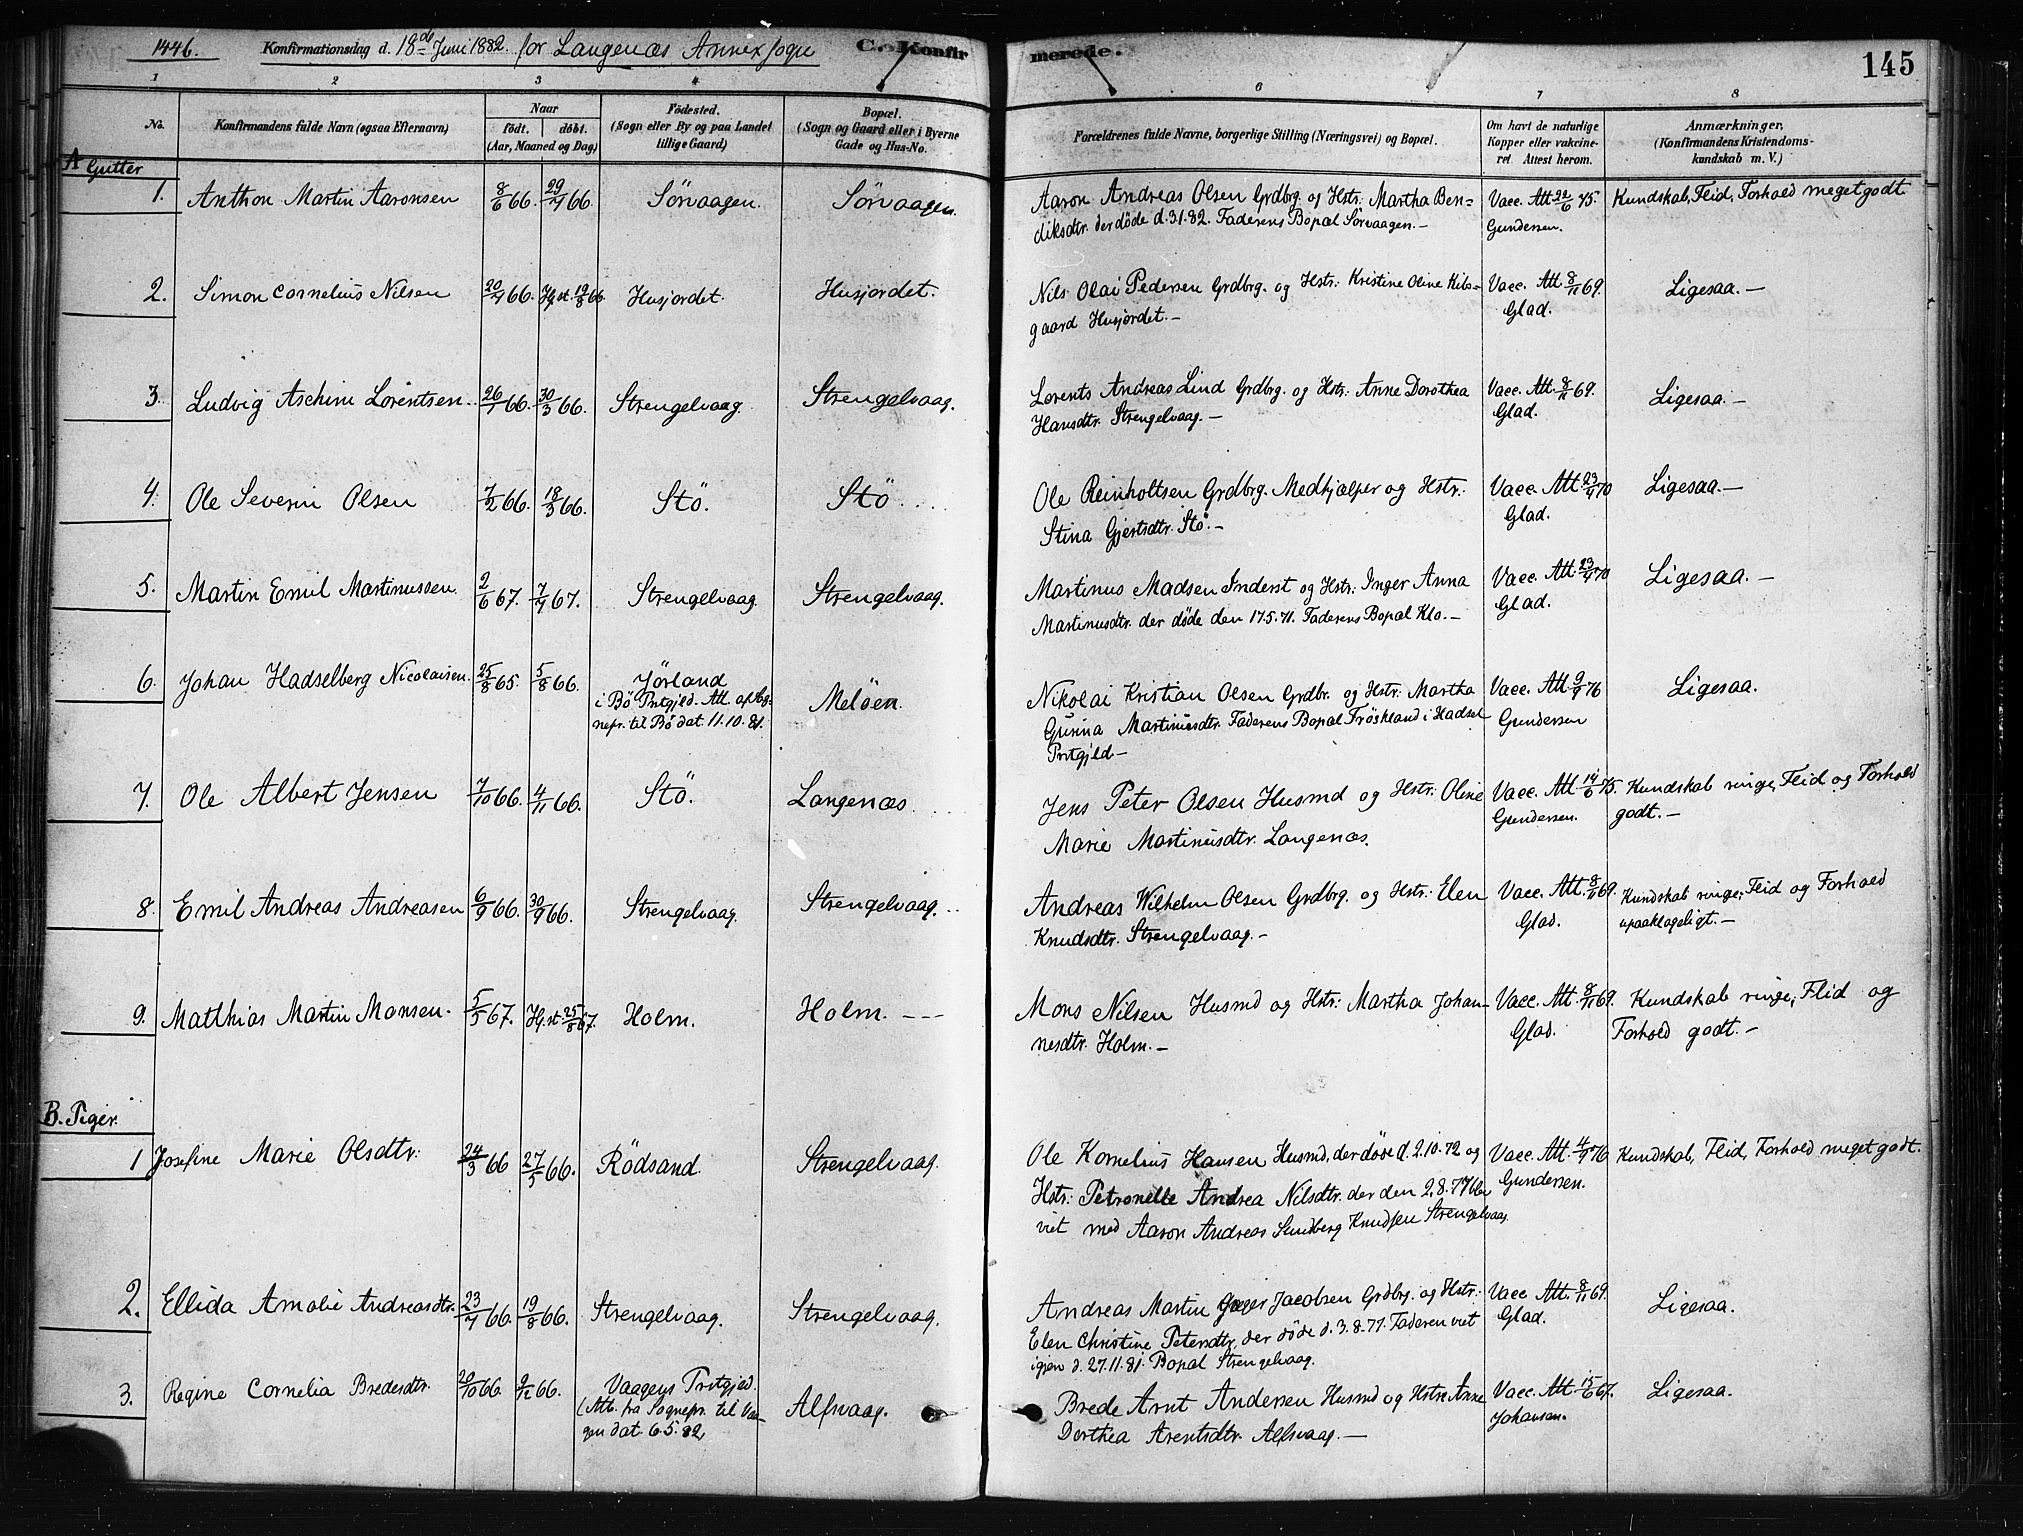 1446. Konfirmationsdag d. 18de Juni 1882. for Langenæs Annexsogn C. Konfirmerede. 145
1 2 3 4 6 7 8
No. Konfirmandens fulde Navn (ogsaa Efternavn) Naar født. døbt. (Aar, Maaned og Dag) Fødested. (Sogn eller By og paa Landet tillige Gaard) Bopæl. (Sogn og Gaard eller i Byerne Gade og Hus-No. Forældrenes fulde Navne, borgerlige Stilling (Næringsvei) og Bopæl. Om havt de naturlige Kopper eller vakcineret. Attest herom. Anmærkninger, (Konfirmandens Kristendomskundskab m. V.)
A Gutter
1. Anthon Martin Aaronsen 8/6 66. 29/7 66. Sörvaagen. Sörvaagen. Aaron Andreas Olsen Grdbrg. og Hstr. Martha Ben=
diksdtr. der døde d. 3.1.82. Faderens Bopæl Sørvaagen.— Vacc. Att. 22/6 75. Gundersen. Kundskab, Flid, Forhold meget godt
2. Simon Cornelius Nilsen 20/4 66. Hj.st. 19/8 66 Husjordet. Husjordet. Nils Olai Pedersen Grdbrg. og Hstr. Kristine Oline Kils=
gaard Husjordet.— Vacc. Att. 8/11 69. Glad. Ligesaa.—
3. Ludvig Aschim Lorentsen. 26/1 66. 30/3 66. Strengelvaag. Strengelvaag. Lorents Andreas Lind Grdbrg. og Hstr. Anne Dorothea
Hansdtr. Strengelvaag.— Vacc. Att. 8/11 69. Glad. Ligesaa.—
4. Ole Severin Olsen 7/2 66. 18/3 66. Stö. Stö.... Ole Reinholtsen Grdbrg. Medhjælper og Hstr.
Stina Gjertsdtr. Stö.— Vacc. Att. 23/4 70 Glad. Ligesaa.—
5. Martin Emil Martinussen. 2/6 67. 7/7 67. Strengelvaag. Strengelvaag. Martinus Madsen Inderst og Hstr. Inger Anna
Martinusdtr. der døde den 17.5.71. Faderens Bopæl Klo.— Vacc. Att. 23/4 70 Glad. Ligesaa.—
6. Johan Hadselberg Nicolaisen. 25/8 65. 5/8 66. Jørland
i Bö Prstgjeld. Att. af Sog-
nepr. til Bö dat. 11.10.81. Melöen. Nikolai Kristian Olsen Grdbr. og Hstr. Martha
Gurina Martinusdtr. Faderens Bopæl Fröskland i Hadsel
Prstgjld.— Vacc. Att. 9/9 76 Gundersen Ligesaa.
7. Ole Albert Jensen 7/10 66. 4/11 66. Stö. Langenæs. Jens Peter Olsen Husmd og Hstr. Oline
Marie Martinusdtr. Langenæs. Vacc. Att. 14/6 75. Gundersen. Kundskab ringe, Flid og Forhold
godt.—
8. Emil Andreas Andreasen 6/9 66. 30/9 66. Strengelvaag. Strengelvaag. Andreas Wilhelm Olsen Grdbrg. og Hstr. Elen
Knudsdtr. Strengelvaag.— Vacc. Att. 8/11 69. Glad. Kundskab ringe, Flid og Forhold
upaaklageligt.—
9. Matthias Martin Monsen. 5/5 67. Hj.st. 25/8 67. Holm. Holm.--- Mons Nilsen Husmd og Hstr: Martha Johan-
nesdtr. Holm.— Vacc. Att. 8/11 69. Glad. Kundskab ringe, Flid og
Forhold godt.—
B. Piger.
1 Josefine Marie Olsdtr. 24/3 66 27/5 66. Rödsand. Strengelvaag. Ole Kornelius Hansen Husmd, der døde d. 2.10.72 og
Hstr: Petronelle Andrea Nilsdtr. der den 2.8.77 blev
viet med Aaron Andreas Sundberg Knudsen Strengelvaag Vacc. Att. 4/9 76 Gundersen. Kundskab, Flid, Forhold meget godt.
2. Ellida Amalie Andreasdtr. 23/7 66. 19/8 66. Strengelvaag. Strengelvaag. Andreas Martin Jacobsen Grdbrg. og Hstr.
Elen Christine Petersdtr, der døde d. 3.8.77. Faderen viet
igjen d. 27.11.81. Bopæl Strengelvaag. Vacc Att. 8/11 69. Glad. Ligesaa.
3. Regine Cornelia Bredesdtr. 20/10 66. 9/12 66. Vaagens Prstgjed.
(Att. fra Sognepr. til Vaa-
gen dat. 6.5.82, Alfsvaag. Brede Arnt Andersen Husmd og Hstr. Anne
Dorthea Arentsdtr. Alfsvaag.— Vacc. Att. 15/6 67. Johansen. Ligesaa.